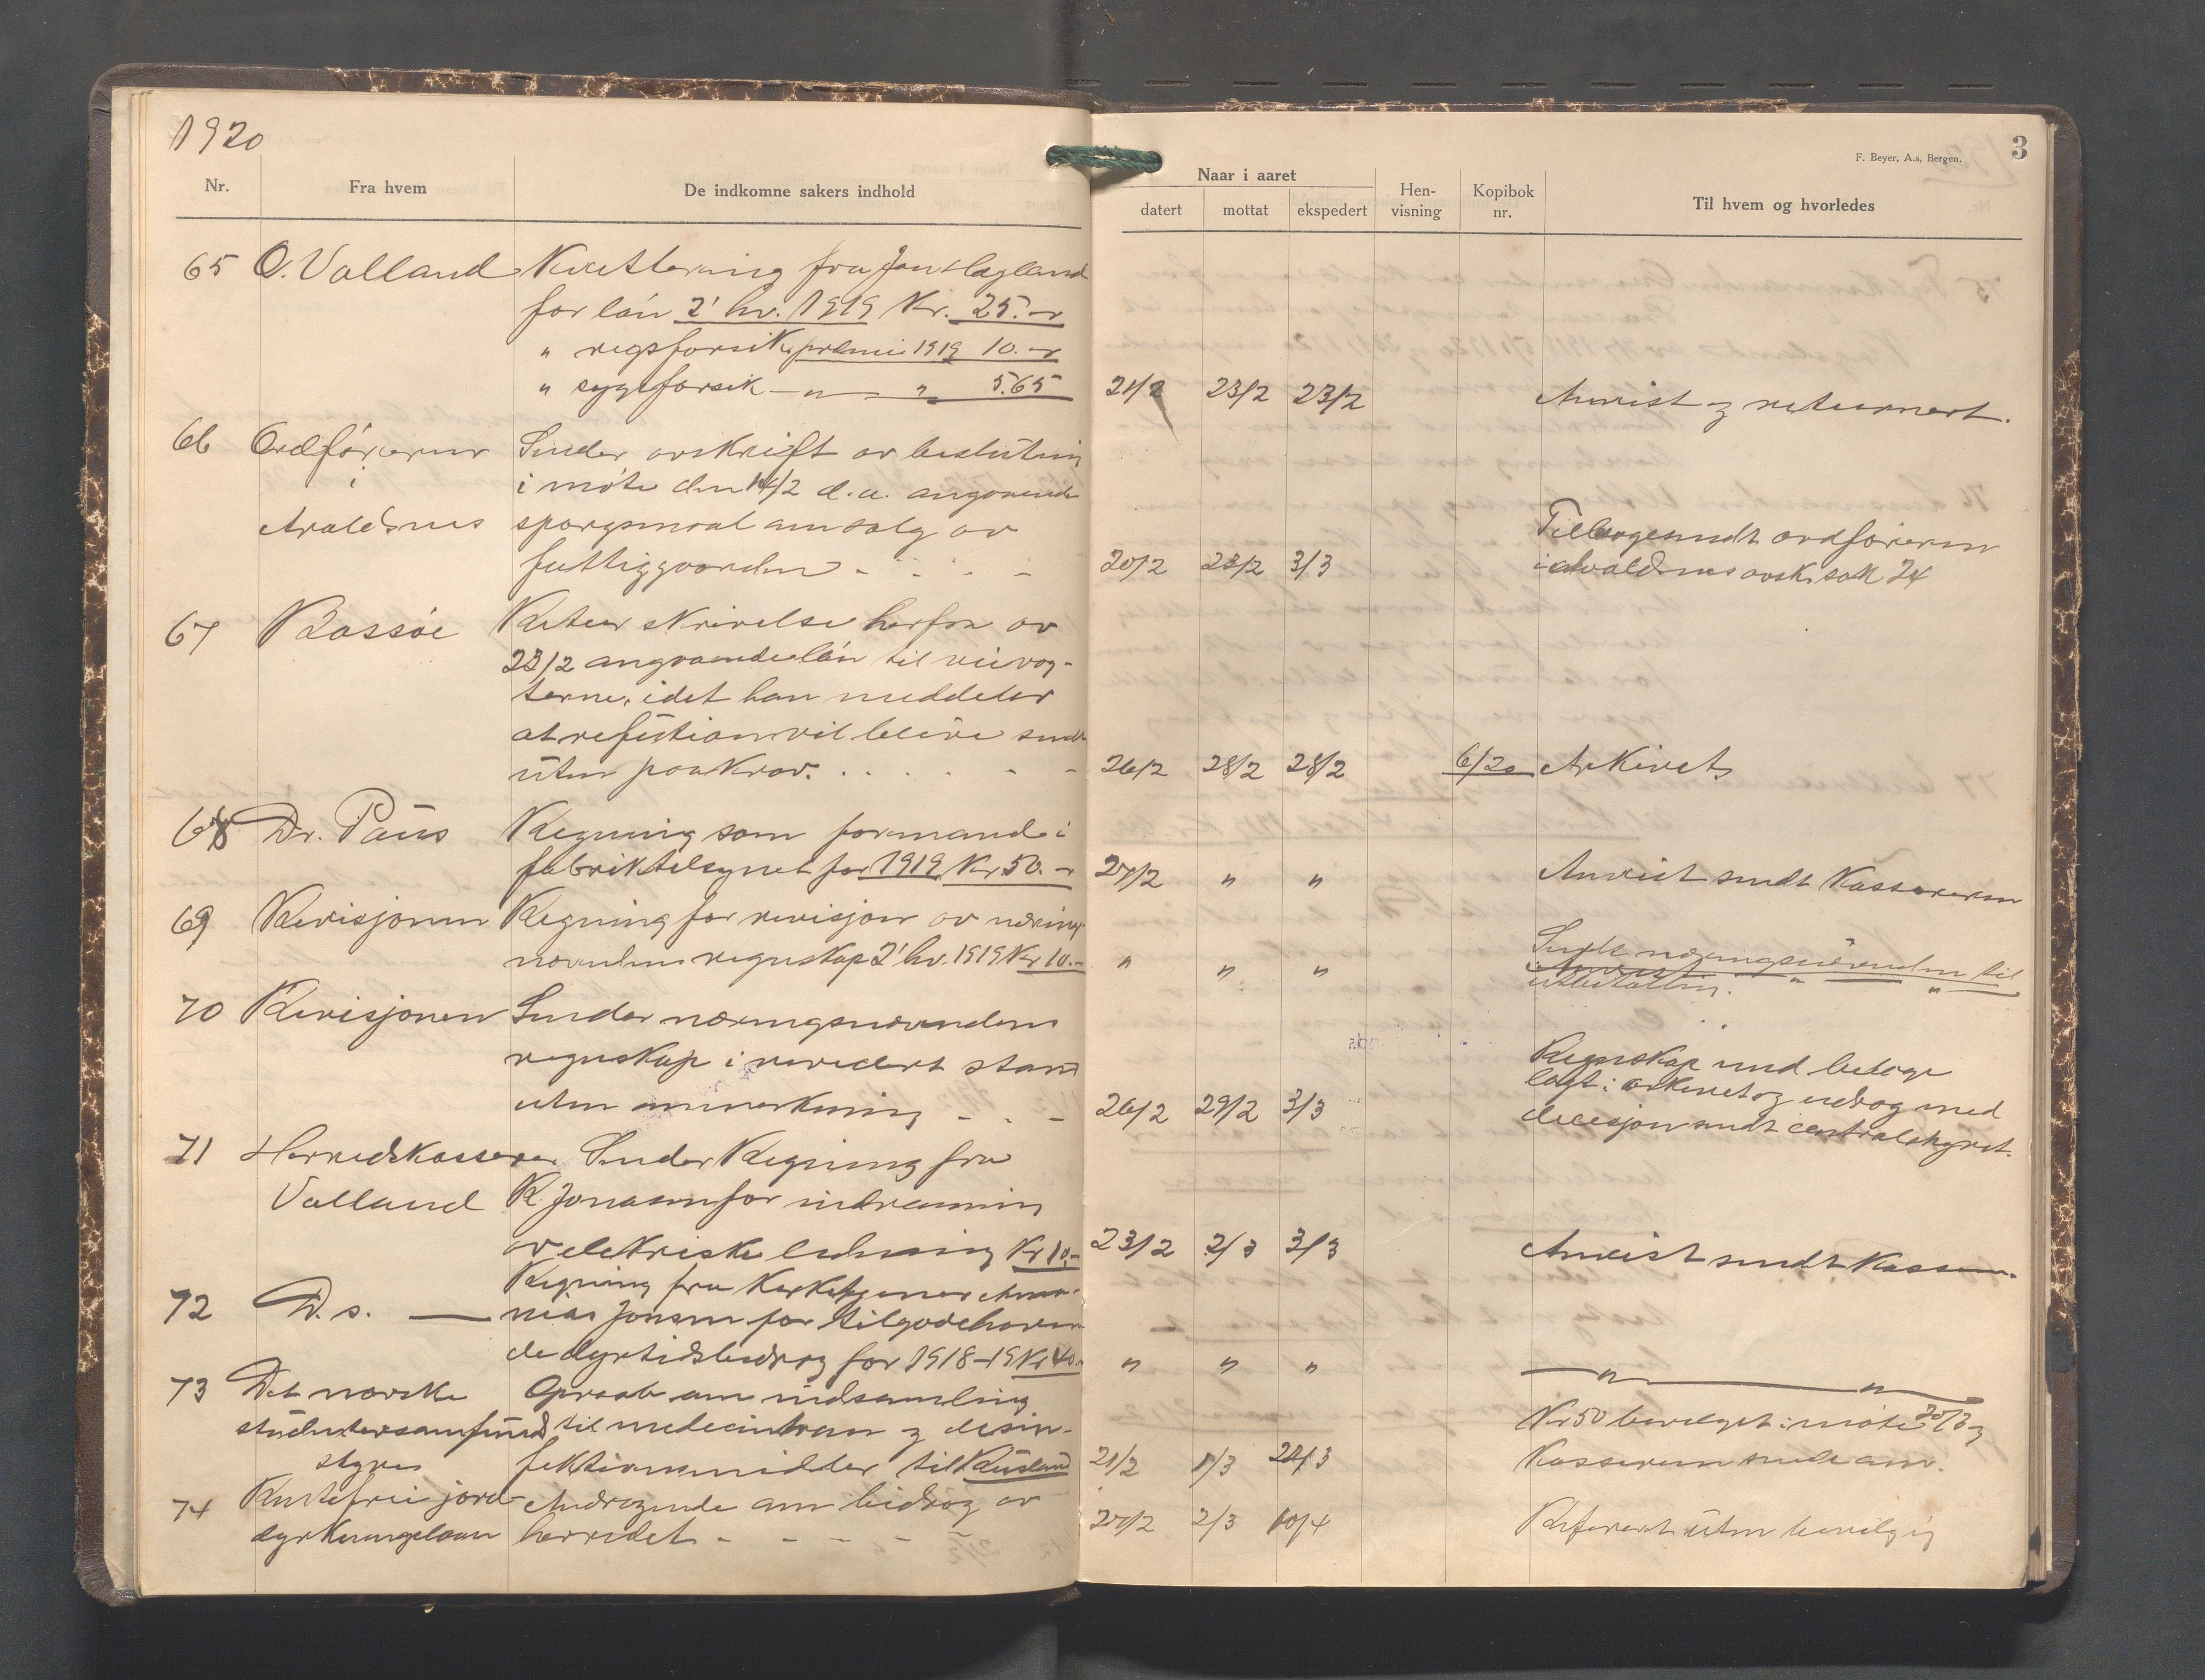 1920
Nr. Fra hvem De indkomne sakers indhold
65 O. Valland Kvittering fra Jon Hagland
for lón 2' hv. 1919 Kr. 25.-
" præmie 1919 10.-
" sygeforsik - " - " 5.65
66 Ordföreren Sender avskrift av beslutning
i i möte den 14/2 d.a. angaaende
Avaldsnes spørgsmaal om salg av
fattiggaarden - - - -
67 Bassöe Retur skrivelse herfra av
23/2 angaaende lón til veivog-
terne, idet han meddeler
at refusion vil bli sendt
uten paakrav. . . . - -
68 Dr. Paus Regning som formand i
fabriktilsynet for 1919 Kr 50.-
69 Revisjonen Regning for revisjon av nærings
nevndens regnskap 2' hv. 1919 Kr 10.-
70 Revisjonen Sender næringsnevndens
regnskap i revidert stand
uten anmerkning - - -
71 Herredskasserer Sender Regning fra
Valland R. Jonassen for
av elektriske ledning Kr 10.-
72 D.s. — Regning fra Kirketjener
Jonsen for tilgodehaven-
de dyrtidsbidrag for 1918-19 Kr 40.-
73 Det norske Opraab om indsamling
studentersamfund til medecin og desin-
styre fektionsmidler til Rusland
74 Rentefrie jord- Andragende om bidrag av
dyrkningslaan herredet - - - - -
3
F. Beyer, A.s, Bergen.
Naar i aaret
datert mottat ekspedert Hen-visning Kopibok nr. Til hvem og hvorledes
21/2 23/2 23/2 Anvist og returnert.
Tilbagesendt ordföreren
20/2 23/2 3/3 i Avaldsnes avsk. sak 24
26/2 28/2 28/2 6/20 Arkivet
27/2 " " Anvist sendt Kassereren
" " " Sendt næringsnevnden til
utbetaling.
Regnskap med belage
lagt i arkivet og utdrag med
26/2 29/2 3/3 decisjon sendt centralstyret.
23/2 2/3 3/3 Anvist sendt Kasser.
" " " — " — " —
Kr 50 bevilget i möte 20/3 og
21/2 1/3 24/3 Kassereren sendt anv.
27/2 2/3 10/4 Referert uten bevilg